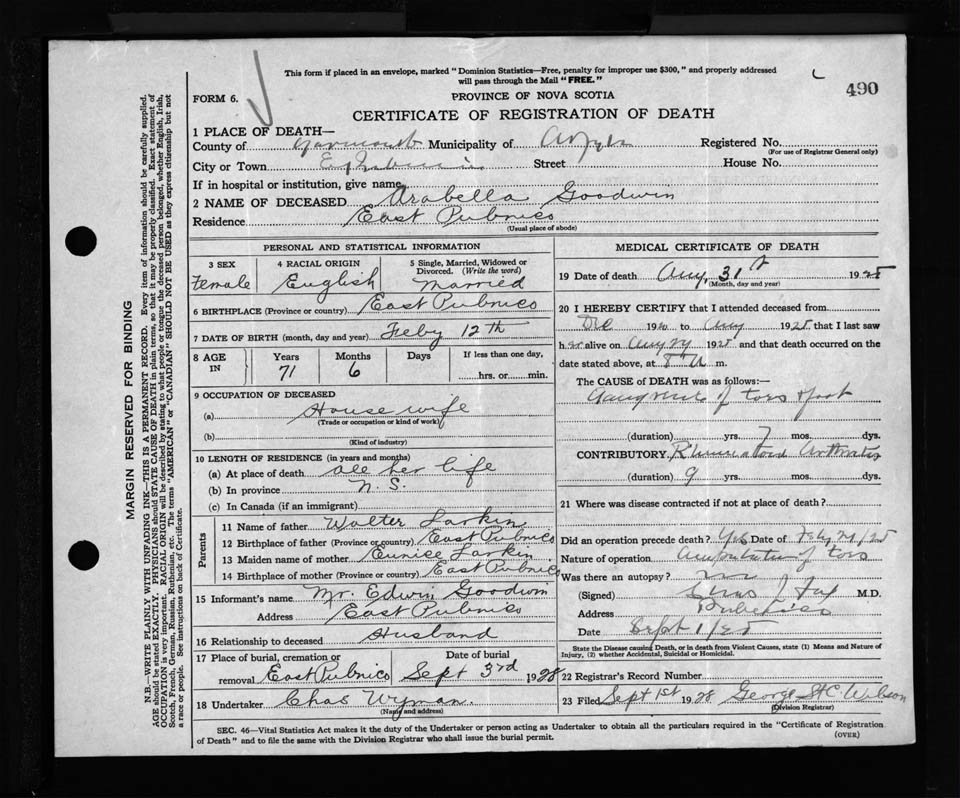 This form if placed in an envelope, marked "Dominion Statistics—Free, penalty for improper use $300," and properly addressed
will pass through the Mail "FREE."
490
FORM 6.
PROVINCE OF NOVA SCOTIA
CERTIFICATE OF REGISTRATION OF DEATH
1 PLACE OF DEATH—
County of Yarmouth Municipality of Argyle Registered No.
(For use of Registrar General only)
City or Town E. Pubnico Street House No.
If in hospital or institution, give name
2 NAME OF DECEASED Arabella Goodwin
Residence East Pubnico
(Usual place of abode)
PERSONAL AND STATISTICAL INFORMATION
3 SEX Female
4 RACIAL ORIGIN English
5 Single, Married, Widowed or Divorced. (Write the word) Married
6 BIRTHPLACE (Province or country) East Pubnico
7 DATE OF BIRTH (month, day and year) Feby 12th
8 AGE IN Years 71 Months 6 Days If less than one day, hrs. or min.
9 OCCUPATION OF DECEASED
(a) House wife
(Trade or occupation or kind of work)
(b)
(Kind of industry)
10 LENGTH OF RESIDENCE (in years and months)
(a) At place of death all her life
(b) In province N. S.
(c) In Canada (if an immigrant)
Parents
11 Name of father Walter Larkin
12 Birthplace of father (Province or country) East Pubnico
13 Maiden name of mother Eunice Larkin
14 Birthplace of mother (Province or country) East Pubnico
15 Informant's name Mr. Edwin Goodwin
Address East Pubnico
16 Relationship to deceased Husband
17 Place of burial, cremation or removal East Pubnico Date of burial Sept 3rd 1928
18 Undertaker Chas Wyman.
(Name and address)
MEDICAL CERTIFICATE OF DEATH
19 Date of death Aug, 31st 1928
(Month, day and year)
20 I HEREBY CERTIFY that I attended deceased from
Dec 19 to Aug 1928 that I last saw
her alive on Aug 1928 and that death occurred on the
date stated above, at m.
The CAUSE OF DEATH was as follows:—
Gangrene of toes & foot
(duration) yrs. 7 mos. dys.
CONTRIBUTORY. Rheumatoid Arthritis
(duration) 9 yrs. mos. dys.
21 Where was disease contracted if not at place of death?
Did an operation precede death? Yes Date of Feby
Nature of operation Amputation of toes
Was there an autopsy? no
(Signed) M.D.
Address Pubnico
Date Sept 1/28
State the Disease causing Death, or in death from Violent Causes, state (1) Means and Nature of
Injury, (2) whether Accidental, Suicidal or Homicidal.
22 Registrar's Record Number
23 Filed Sept 1st 1928 George St C. Wilson
(Division Registrar)
SEC. 46—Vital Statistics Act makes it the duty of the Undertaker or person acting as Undertaker to obtain all the particulars required in the "Certificate of Registration
of Death" and to file the same with the Division Registrar who shall issue the burial permit.
(OVER)
MARGIN RESERVED FOR BINDING
N.B.—WRITE PLAINLY WITH UNFADING INK—THIS IS A PERMANENT RECORD. Every item of information should be carefully supplied.
AGE should be stated EXACTLY. PHYSICIANS should STATE CAUSE OF DEATH in plain terms, so that it may be properly classified. Exact statement of
OCCUPATION is very important. RACIAL ORIGIN will be described by stating to what people or tongue the deceased person belonged, whether English, Irish,
Scotch, French, German, Russian, Ruthenian, etc. The terms "AMERICAN" or "CANADIAN" SHOULD NOT BE USED as they express citizenship but not
a race or people. See instructions on back of Certificate.